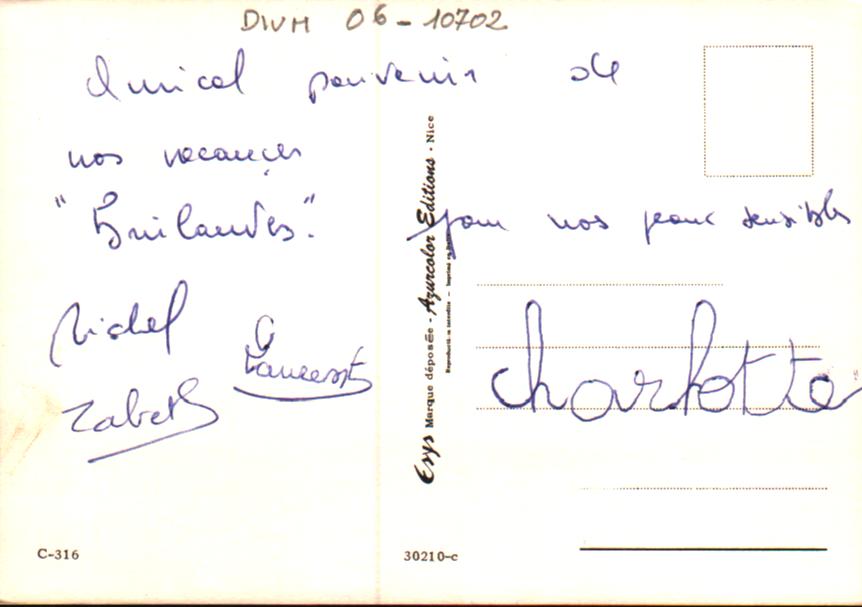 DIVM 06-10702
Amical souvenir de
nos vacances
"Brûlantes".
pour nos peaux sensibles
Michel
Zabeth
charlotte
Erys Marque déposée - Azurcolor Editions - Nice
Reproduction interdite - Imprimé en
C-316
30210-c